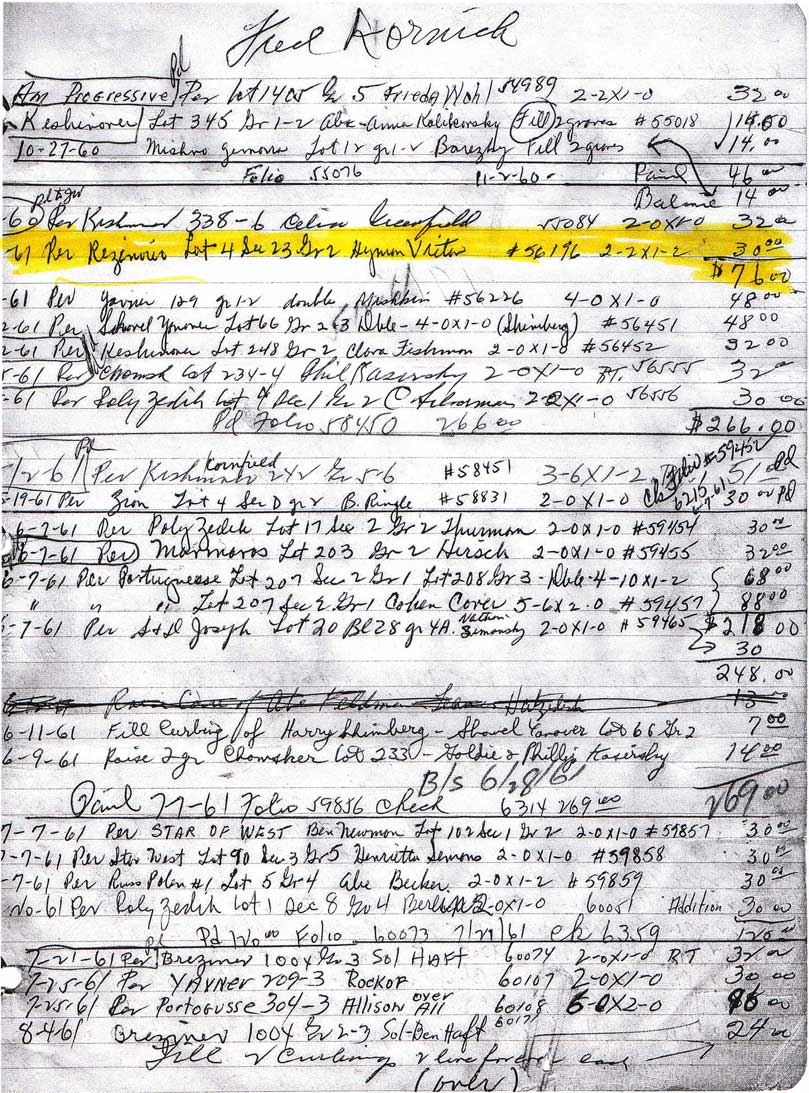 Fred Hornick
Pd
Am Progressive Per Lot 1405 Gr. 5 Frieda Wohl 54989 2-2X1-0 32 00
Keshinover Lot 345 Gr 1-2 Abe-Anna Kolikovsky Fill 2 graves #55018 14.00
10-27-60 Lot 12 gr 1-2 Fill 2 graves 14.00
Folio 55076 11-2-60 Paid 46 00
Balance 14 00
-60 Per 338-6 Celia Greenfield 55084 32 00
-61 Per Rezinover Lot 4 Sec 23 Gr 2 Hyman Victor #56196 2-2X1-2 30 00
$76 00
-61 Per 129 gr 1-2 double #56226 4-0X1-0 48 00
2-61 Per Lot 66 Gr 2-3 Dble-4-0X1-0 (Shimberg) #56451 48 00
2-61 Per Keshinover Lot 248 Gr 2 Clara Fishman 2-0X1-0 #56452 32 00
-61 Per Chomsk Lot 234-4 Phil Kasirsky 2-0X1-0 RT. 56555 32 00
-61 Per Poly Zedik Lot 4 Sec 1 Gr 2 C 56556 30 00
Pd Folio 58450 266 00 $266.00
Pd
-2-61 Per Kornfield 242 Gr 5-6 #58451 3-6X1-2 51 00 Pd
Ck Folio #59452
6215
5-19-61 Per Zion Lot 4 Sec D gr 2 B. Ringle #58831 2-0X1-0 30 00 Pd
6-7-61 Per Poly Zedek Lot 17 Sec 2 Gr 2 2-0X1-0 #59454 30 00
6-7-61 Per Marmaros Lot 203 Gr 2 Hersch 2-0X1-0 #59455 32 00
6-7-61 Per Portuguese Lot 207 Sec 2 Gr 1 Lot 208 Gr 3 - Dble-4-10X1-2 68 00
" " " Lot 207 Sec 2 Gr 1 Cohen Cover 5-6X2.0 #59457 88 00
-7-61 Per S&D Joseph Lot 20 Bl 28 gr 4A. Nathan Simansky 2-0X1-0 #59465 $218 00
30
248.00
6-11-61 Fill Curbing of Harry Shimberg - Shavel Yanover Lot 66 Gr 2 7 00
6-9-61 Raise 2 gr Chomsker Lot 233 - Goldie & Phillip Kasirsky 14 00
B/s 6/28/61
Paid 7-7-61 Folio 59856 Check 6314 269 00 269 00
7-7-61 Per STAR OF WEST Ben Newman Lot 102 Sec 1 Gr 2 2-0X1-0 #59857 30 00
7-7-61 Per Star West Lot 90 Sec 3 Gr 5 Henrietta Semons 2-0X1-0 #59858 30 00
-7-61 Per Russ Polen #1 Lot 5 Gr 4 Abe Becker. 2-0X1-2 #59859 30 00
-61 Per Poly Zedek Lot 1 Sec 8 Gr 4 2-0X1-0 60051 Addition 30 00
Pd 120 00 Folio 60073 7/21/61 ck 6359 120 00
Pd
7-21-61 Per Breziner 1004 Gr 3 Sol HAFT 60074 2-0X1-0 RT 32 00
7-25-61 Per YAVNER 209-3 ROCKOF 60107 2-0X1-0 30 00
7-25-61 Per Portogusse 304-3 Allison over All 60108 6-0X2-0 96 00
8-4-61 Breziner 1004 Gr 2-3 Sol-Ben Haft 24 00
Fill 2 Curbings each
(over)